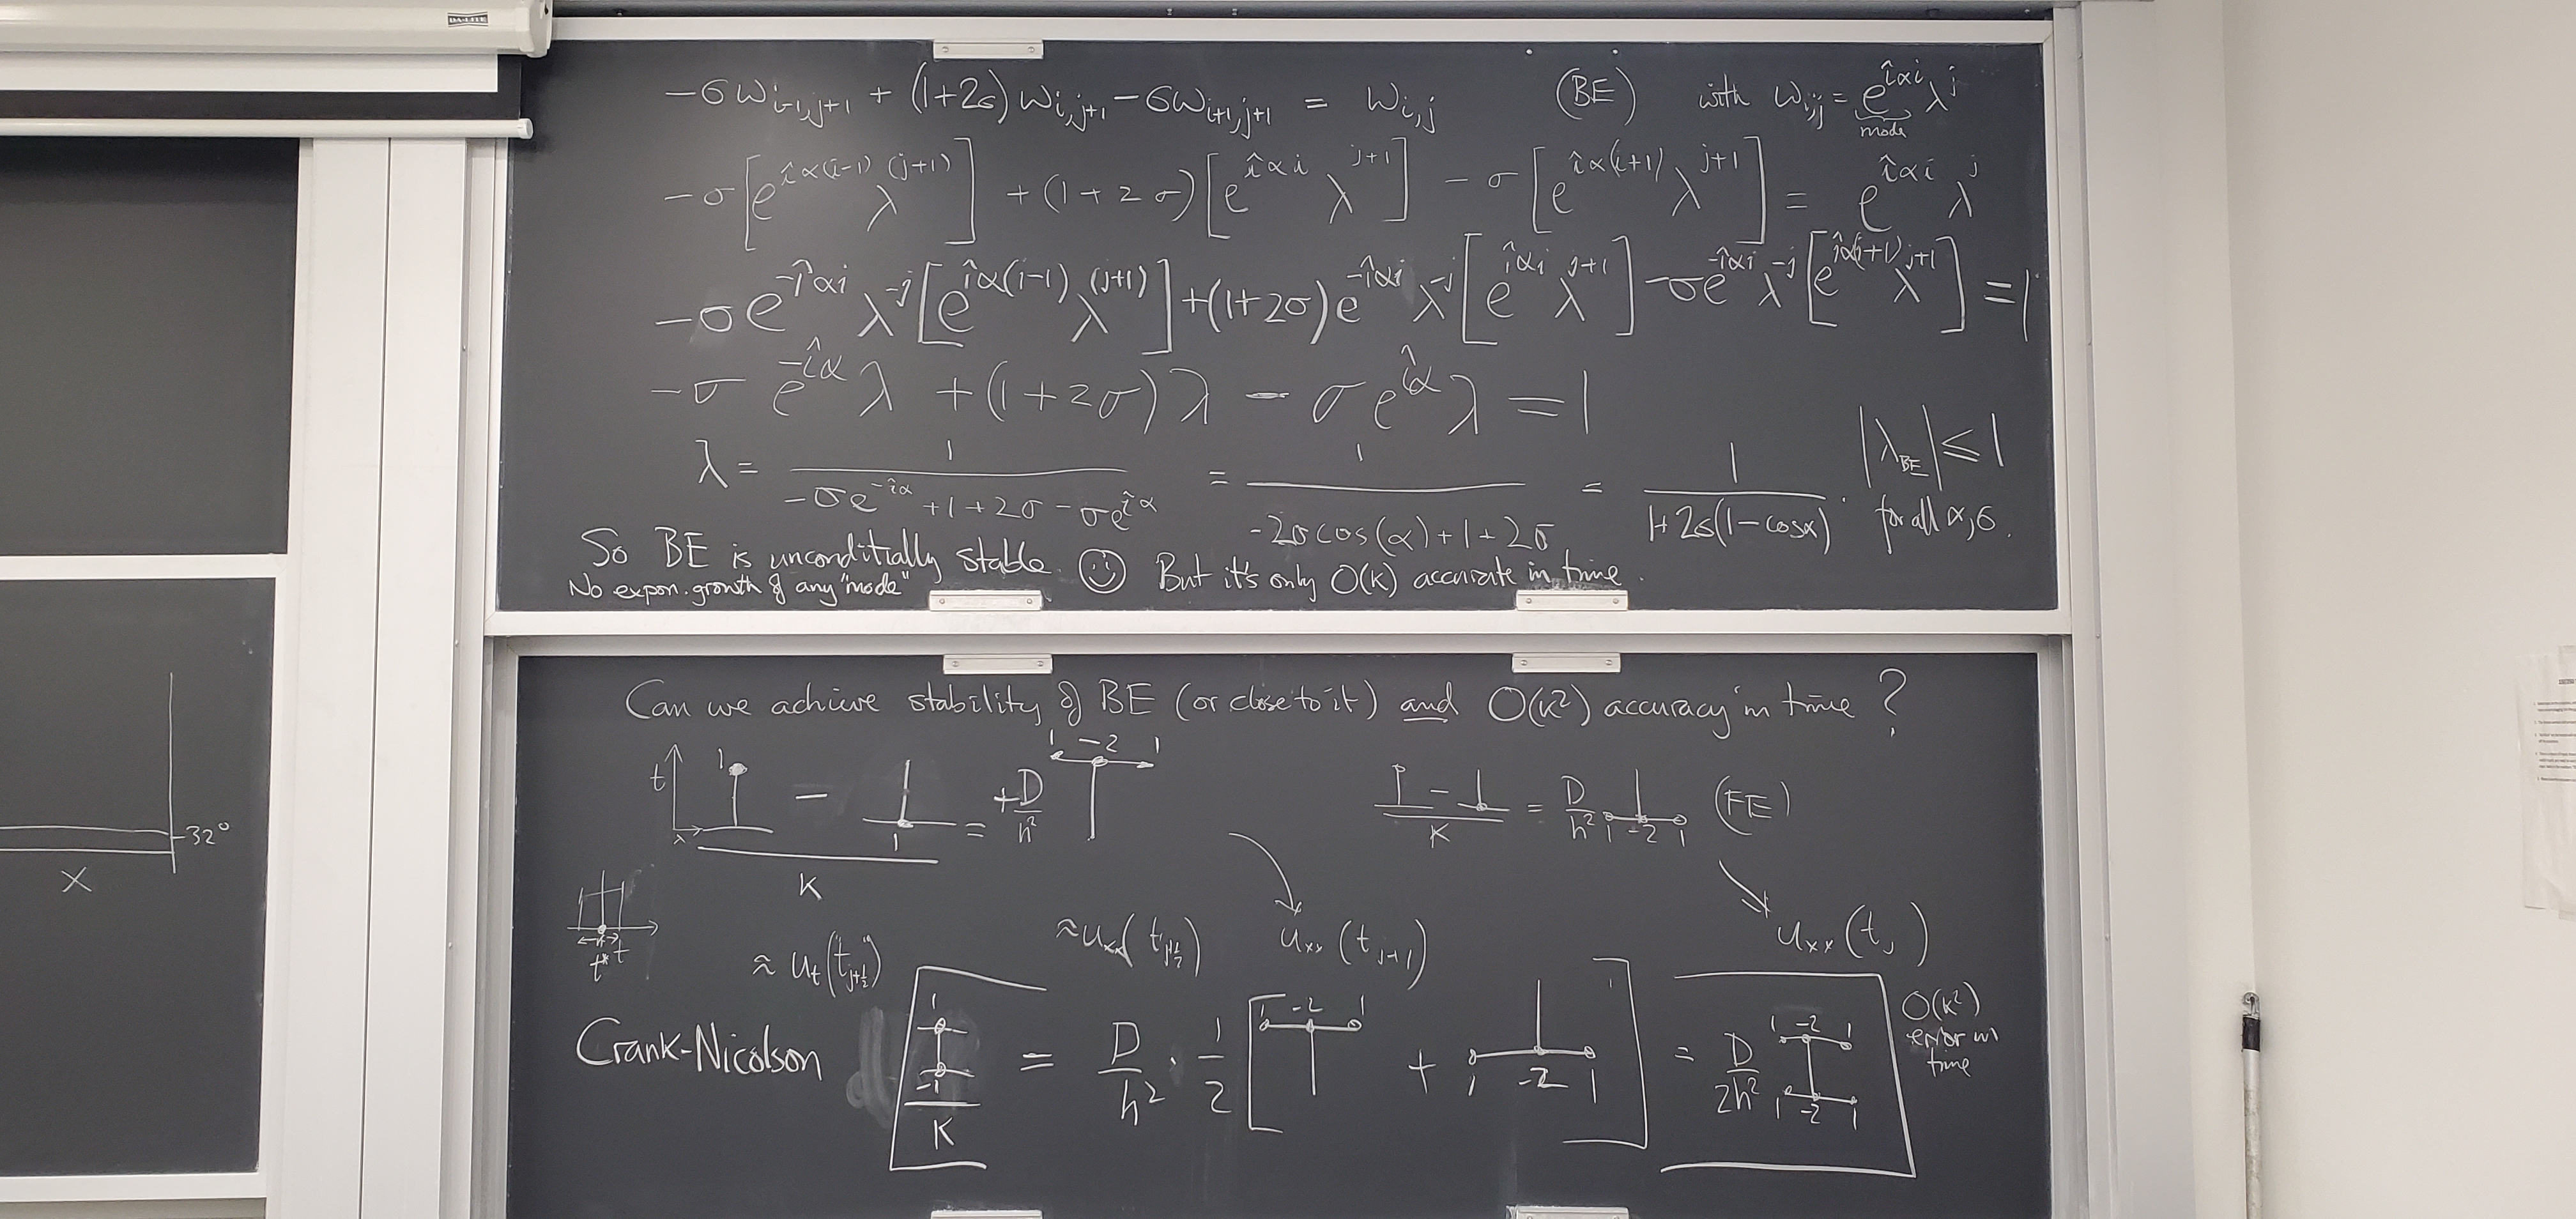 DA-LITE
-σw_{i-1,j+1} + (1+2σ)w_{i,j+1} - σw_{i+1,j+1} = w_{i,j} (BE) with w_{i,j} = e^{îαi} λ^j
mode
-σ[e^{îα(i-1)} λ^{(j+1)}] + (1+2σ)[e^{îαi} λ^{j+1}] - σ[e^{îα(i+1)} λ^{j+1}] = e^{îαi} λ^j
-σe^{-îαi} λ^{-j}[e^{îα(i-1)} λ^{(j+1)}] + (1+2σ)e^{-îαi} λ^{-j}[e^{îαi} λ^{j+1}] - σe^{-îαi} λ^{-j}[e^{îα(i+1)} λ^{j+1}] = 1
-σ e^{-îα} λ + (1+2σ)λ - σe^{îα} λ = 1
λ = 1/(-σe^{-îα} + 1 + 2σ - σe^{îα}) = 1/(-2σcos(α) + 1 + 2σ) = 1/(1+2σ(1-cosα)). |λ_{BE}| ≤ 1
for all α, σ.
So BE is unconditially stable. ☺ But it's only O(k) accurate in time.
No expon. growth of any "mode"
Can we achieve stability of BE (or close to it) and O(k²) accuracy in time?
t 1 - 1 = +D/h² 1 -2 1
x
K
- = D/h² 1 -2 1 (FE)
K
32°
X
t* t
≈ u_t("t_{j+½}") ≈ u_{xx}(t_{j+½}) u_{xx}(t_{j+1}) u_{xx}(t_j)
Crank-Nicolson 1 -1 / K = D/h² · 1/2 [1 -2 1 + 1 -2 1] = D/2h² 1 -2 1 1 -2 1
O(k²)
error in
time